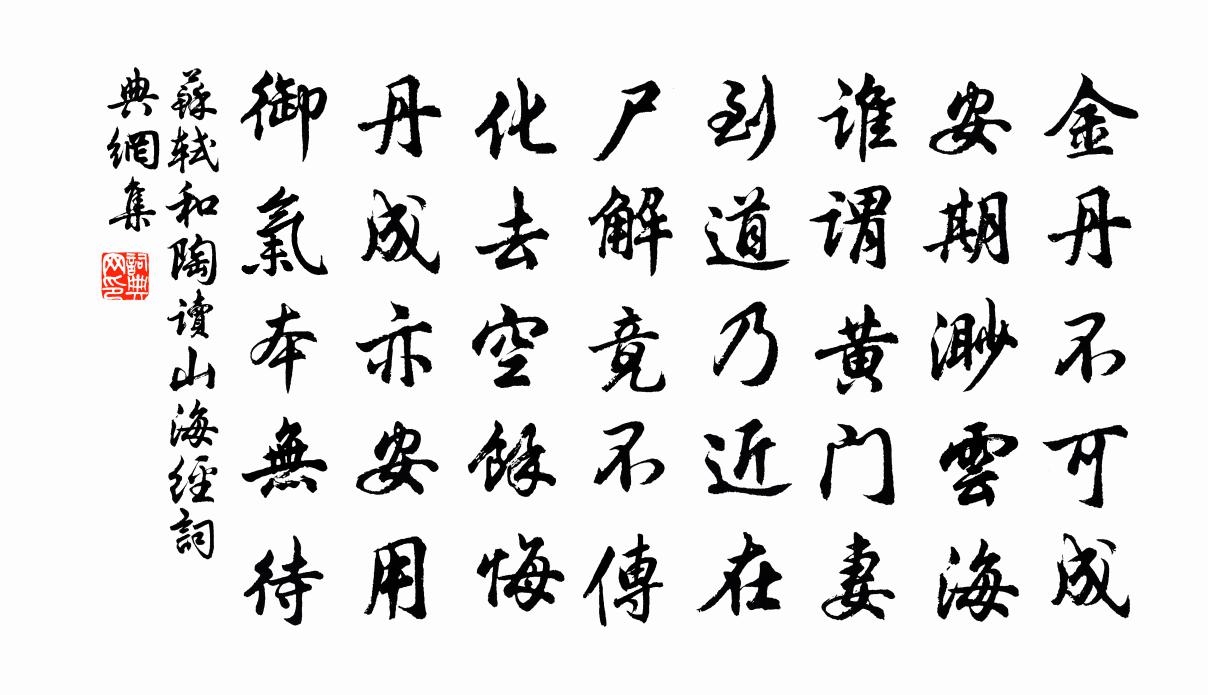 金丹不可成
安期渺雲海
誰謂黄门妻
到道乃近在
尸解竟不傳
化去空餘悔
丹成亦安用
御氣本無待
蘇軾和陶讀山海經詞
典網集
詞典
网印